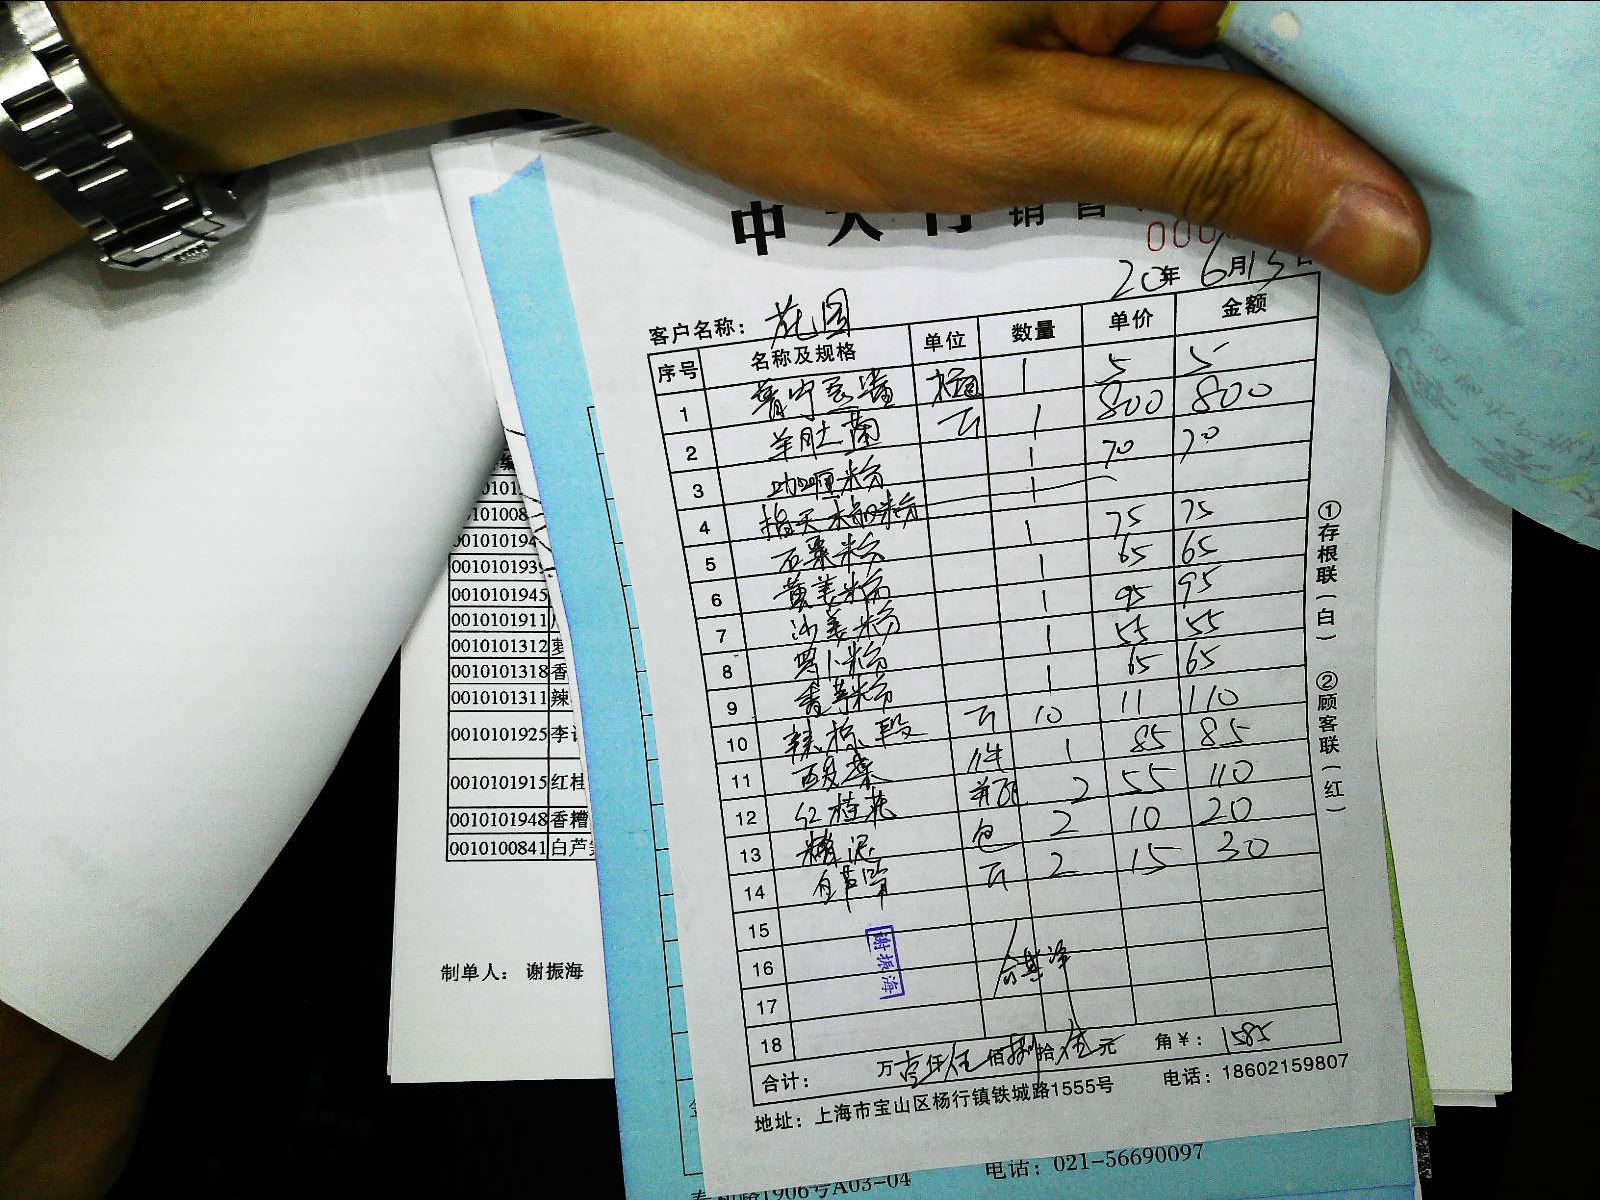 中
20年6月13
客户名称：花园
序号 名称及规格 单位 数量 单价 金额
1 桶 1 5 5
2 羊肚菌 斤 1 800 800
3 咖喱粉 1 70 70
4 指天椒粉 1
5 粉 1 75 75
6 黄姜粉 1 65 65
7 沙姜粉 1 95 95
8 萝卜粉 1 55 55
9 香草粉 1 65 65
10 辣椒段 斤 10 11 110
11 件 1 85 85
12 红桂花 瓶 2 55 110
13 糟泥 包 2 10 20
14 白芦笋 斤 2 15 30
15
16
17
18
谢振海
合计： 万壹仟伍佰捌拾伍元 角￥：1585
地址：上海市宝山区杨行镇铁城路1555号 电话：18602159807
①存根联（白） ②顾客联（红）
0010101945
0010101911
0010101312
0010101318 香
0010101311 辣
0010101925 李
0010101915 红桂
0010101948 香糟
0010100841 白芦
制单人： 谢振海
1906号A03-04 电话：021-56690097